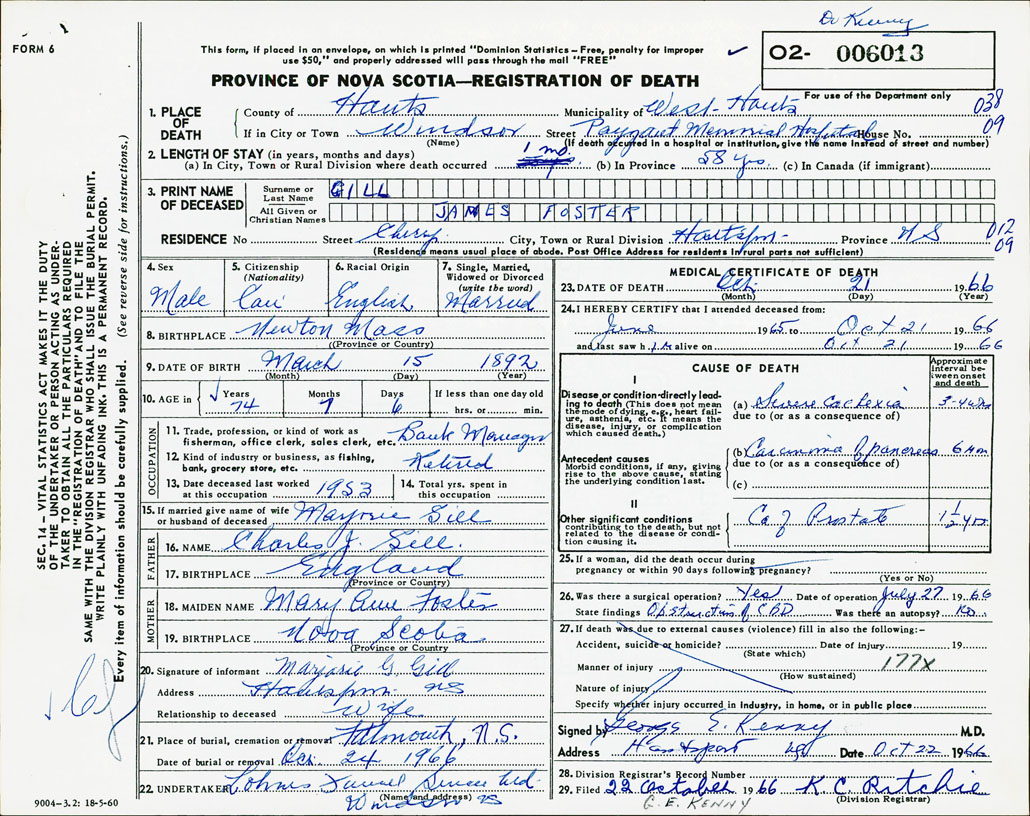 Dr Kenny
FORM 6
This form, if placed in an envelope, on which is printed "Dominion Statistics – Free, penalty for improper
use $50," and properly addressed will pass through the mail "FREE"
02- 006013
For use of the Department only
PROVINCE OF NOVA SCOTIA—REGISTRATION OF DEATH
1. PLACE OF DEATH County of Hants Municipality of West-Hants 038
If in City or Town Windsor Street Memorial Hospital House No. 09
(Name) (If death occurred in a hospital or institution, give the name instead of street and number)
2. LENGTH OF STAY (in years, months and days)
(a) In City, Town or Rural Division where death occurred 1 mo. (b) In Province 58 yrs. (c) In Canada (if immigrant)
3. PRINT NAME OF DECEASED Surname or Last Name GILL
All Given or Christian Names JAMES FOSTER
RESIDENCE No Street Cherry City, Town or Rural Division Hantsport Province NS 012 09
(Residence means usual place of abode. Post Office Address for residents in rural parts not sufficient)
4. Sex Male
5. Citizenship (Nationality) Can
6. Racial Origin English
7. Single, Married, Widowed or Divorced (write the word) Married
8. BIRTHPLACE Newton Mass
(Province or Country)
9. DATE OF BIRTH March 15 1892
(Month) (Day) (Year)
10. AGE in Years 74 Months 7 Days 6 If less than one day old hrs. or min.
OCCUPATION
11. Trade, profession, or kind of work as
fisherman, office clerk, sales clerk, etc. Bank Manager
12. Kind of industry or business, as fishing,
bank, grocery store, etc. Retired
13. Date deceased last worked
at this occupation 1953
14. Total yrs. spent in
this occupation
15. If married give name of wife
or husband of deceased Marjorie Gill
FATHER
16. NAME Charles J. Gill.
17. BIRTHPLACE England
(Province or Country)
MOTHER
18. MAIDEN NAME Mary Ann Foster
19. BIRTHPLACE Nova Scotia
(Province or Country)
20. Signature of informant Marjorie G. Gill
Address Hantsport NS
Relationship to deceased Wife
21. Place of burial, cremation or removal Falmouth, N.S.
Date of burial or removal Oct. 24 1966
22. UNDERTAKER Ltd.
(Name and address) Windsor NS
9004-3.2: 18-5-60
MEDICAL CERTIFICATE OF DEATH
23. DATE OF DEATH Oct. 21 1966
(Month) (Day) (Year)
24. I HEREBY CERTIFY that I attended deceased from:
June 1965 to Oct 21 1966
and last saw h im alive on Oct 21 1966
CAUSE OF DEATH
Approximate interval between onset and death
I
Disease or condition directly leading to death (This does not mean the mode of dying, e.g., heart failure, asthenia, etc. It means the disease, injury, or complication which caused death.)
(a) Severe Cachexia 3-4 wks
due to (or as a consequence of)
Antecedent causes
Morbid conditions, if any, giving rise to the above cause, stating the underlying condition last.
(b) Carcinoma of pancreas 6 mon
due to (or as a consequence of)
(c)
II
Other significant conditions
contributing to the death, but not related to the disease or condition causing it.
Ca of Prostate 1 1/2 yrs.
25. If a woman, did the death occur during
pregnancy or within 90 days following pregnancy?
(Yes or No)
26. Was there a surgical operation? Yes Date of operation July 27 1966
State findings Obstruction of CBD Was there an autopsy? No
27. If death was due to external causes (violence) fill in also the following:–
Accident, suicide or homicide? Date of injury 19
(State which) 177X
Manner of injury
(How sustained)
Nature of injury
Specify whether injury occurred in industry, in home, or in public place
Signed by George E. Kenny M.D.
Address Hantsport NS Date Oct 22 1966
28. Division Registrar's Record Number
29. Filed 22 October 1966 K. C. Ritchie
G. E. KENNY (Division Registrar)
SEC. 14 – VITAL STATISTICS ACT MAKES IT THE DUTY
OF THE UNDERTAKER OR PERSON ACTING AS UNDER-
TAKER TO OBTAIN ALL THE PARTICULARS REQUIRED
IN THE "REGISTRATION OF DEATH" AND TO FILE THE
SAME WITH THE DIVISION REGISTRAR WHO SHALL ISSUE THE BURIAL PERMIT.
WRITE PLAINLY WITH UNFADING INK. THIS IS A PERMANENT RECORD.
Every item of information should be carefully supplied. (See reverse side for instructions.)